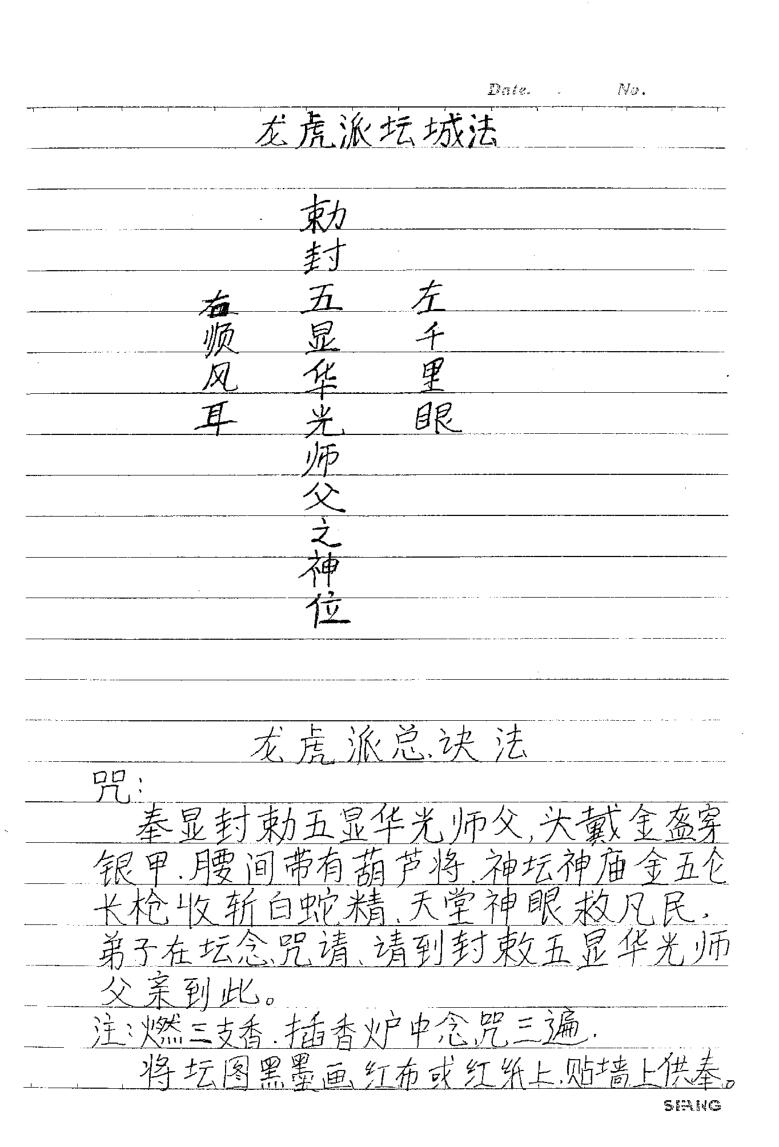 Date. No.
龙虎派坛城法
勅封五显华光师父之神位
左千里眼
右顺风耳
龙虎派总诀法
咒:
奉显封勅五显华光师父,头戴金盔穿
银甲.腰间带有葫芦将.神坛神庙金五仑
长枪收斩白蛇精、天堂神眼救凡民,
弟子在坛念咒请、请到封敕五显华光师
父亲到此。
注:燃三支香.插香炉中念咒三遍.
将坛图黑墨画红布或红纸上.贴墙上供奉。